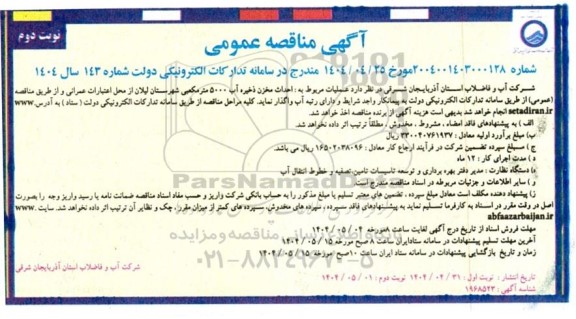 نوبت دوم
آگهی مناقصه عمومی
شماره ۲۰۰۴۰۰۱۴۰۳۰۰۰۱۲۸مورخ ۱۴۰۴/۰۴/۲۵ مندرج در سامانه تدارکات الکترونیکی دولت شماره ۱۴۳ سال ۱۴۰۴
شرکت آب و فاضلاب استان آذربایجان شرقی در نظر دارد عملیات مربوط به : احداث مخزن ذخیره آب ۵۰۰۰ مترمکعبی شهرستان لیلان از محل اعتبارات عمرانی و از طریق مناقصه
(عمومی) از طریق سامانه تدارکات الکترونیکی دولت به پیمانکار واجد شرایط و دارای رتبه آب واگذار نماید. کلیه مراحل مناقصه از طریق سامانه تدارکات الکترونیکی دولت (ستاد) به آدرس .www
setadiran.ir انجام خواهد شد بدیهی است هزینه آگهی از برنده مناقصه اخذ خواهد شد.
الف ) به پیشنهادهای فاقد امضاء ، مشروط ، مخدوش ، مطلقاً ترتیب اثر داده نخواهد شد.
ب) مبلغ برآورد اولیه معادل : ۳۳۰۰۴۰۷۶۱۹۳۷ ریال
ج ) مسبلغ سپرده تضمین شرکت در فرآیند ارجاع کار معادل : ۱۶۵۰۲۰۳۸۰۹۶ ریال می باشد.
د ) مدت اجرای کار : ۱۲ ماه
ه) دستگاه نظارت : مدیر دفتر بهره برداری و توسعه تاسیسات تامین،تصفیه و خطوط انتقال آب
و ) سایر اطلاعات و جزئیات مربوطه در اسناد مناقصه مندرج است.
ز) پیشنهاد دهنده مکلف است معادل مبلغ سپرده ، تضمین های معتبر تسلیم یا مبلغ مذکور را به حساب بانکی شرکت واریز و حسب مفاد اسناد مناقصه ضمانت نامه یا رسید واریز وجه را بصورت
اصل در وقت مقرر در اسناد به کارفرما تسلیم نماید به پیشنهادهای فاقد سپرده ، سپرده های مخدوش، سپرده های کمتر از میزان مقرر، چک و نظایر آن ترتیب اثر داده نخواهد شد. سایت .www
abfaazarbaijan.ir
مهلت فروش اسناد از تاریخ درج آگهی لغایت ساعت ۸صبح مورخه ۱۴۰۴/۰۵/۰۴
آخرین مهلت تسلیم پیشنهادات در سامانه ستادایران ساعت ۸ صبح مورخه ۱۴۰۴/۰۵/۱۵
زمان و تاریخ بازگشایی پیشنهادات در سامانه ستاد ایران ساعت ۱۰صبح مورخه ۱۴۰۴/۰۵/۱۵
شرکت آب و فاضلاب استان آذربایجان شرقی
تاریخ انتشار : نوبت اول : ۱۴۰۴/۰۴/۳۱ نوبت دوم : ۱۴۰۴/۰۵/۰۱
شناسه آگهی : ۱۹۶۸۵۲۳
ParsNamadData
پایگاه اطلاع رسانی مناقصه و مزایده
۰۲۱-۸۸۳۴۹۶۷۰-۵